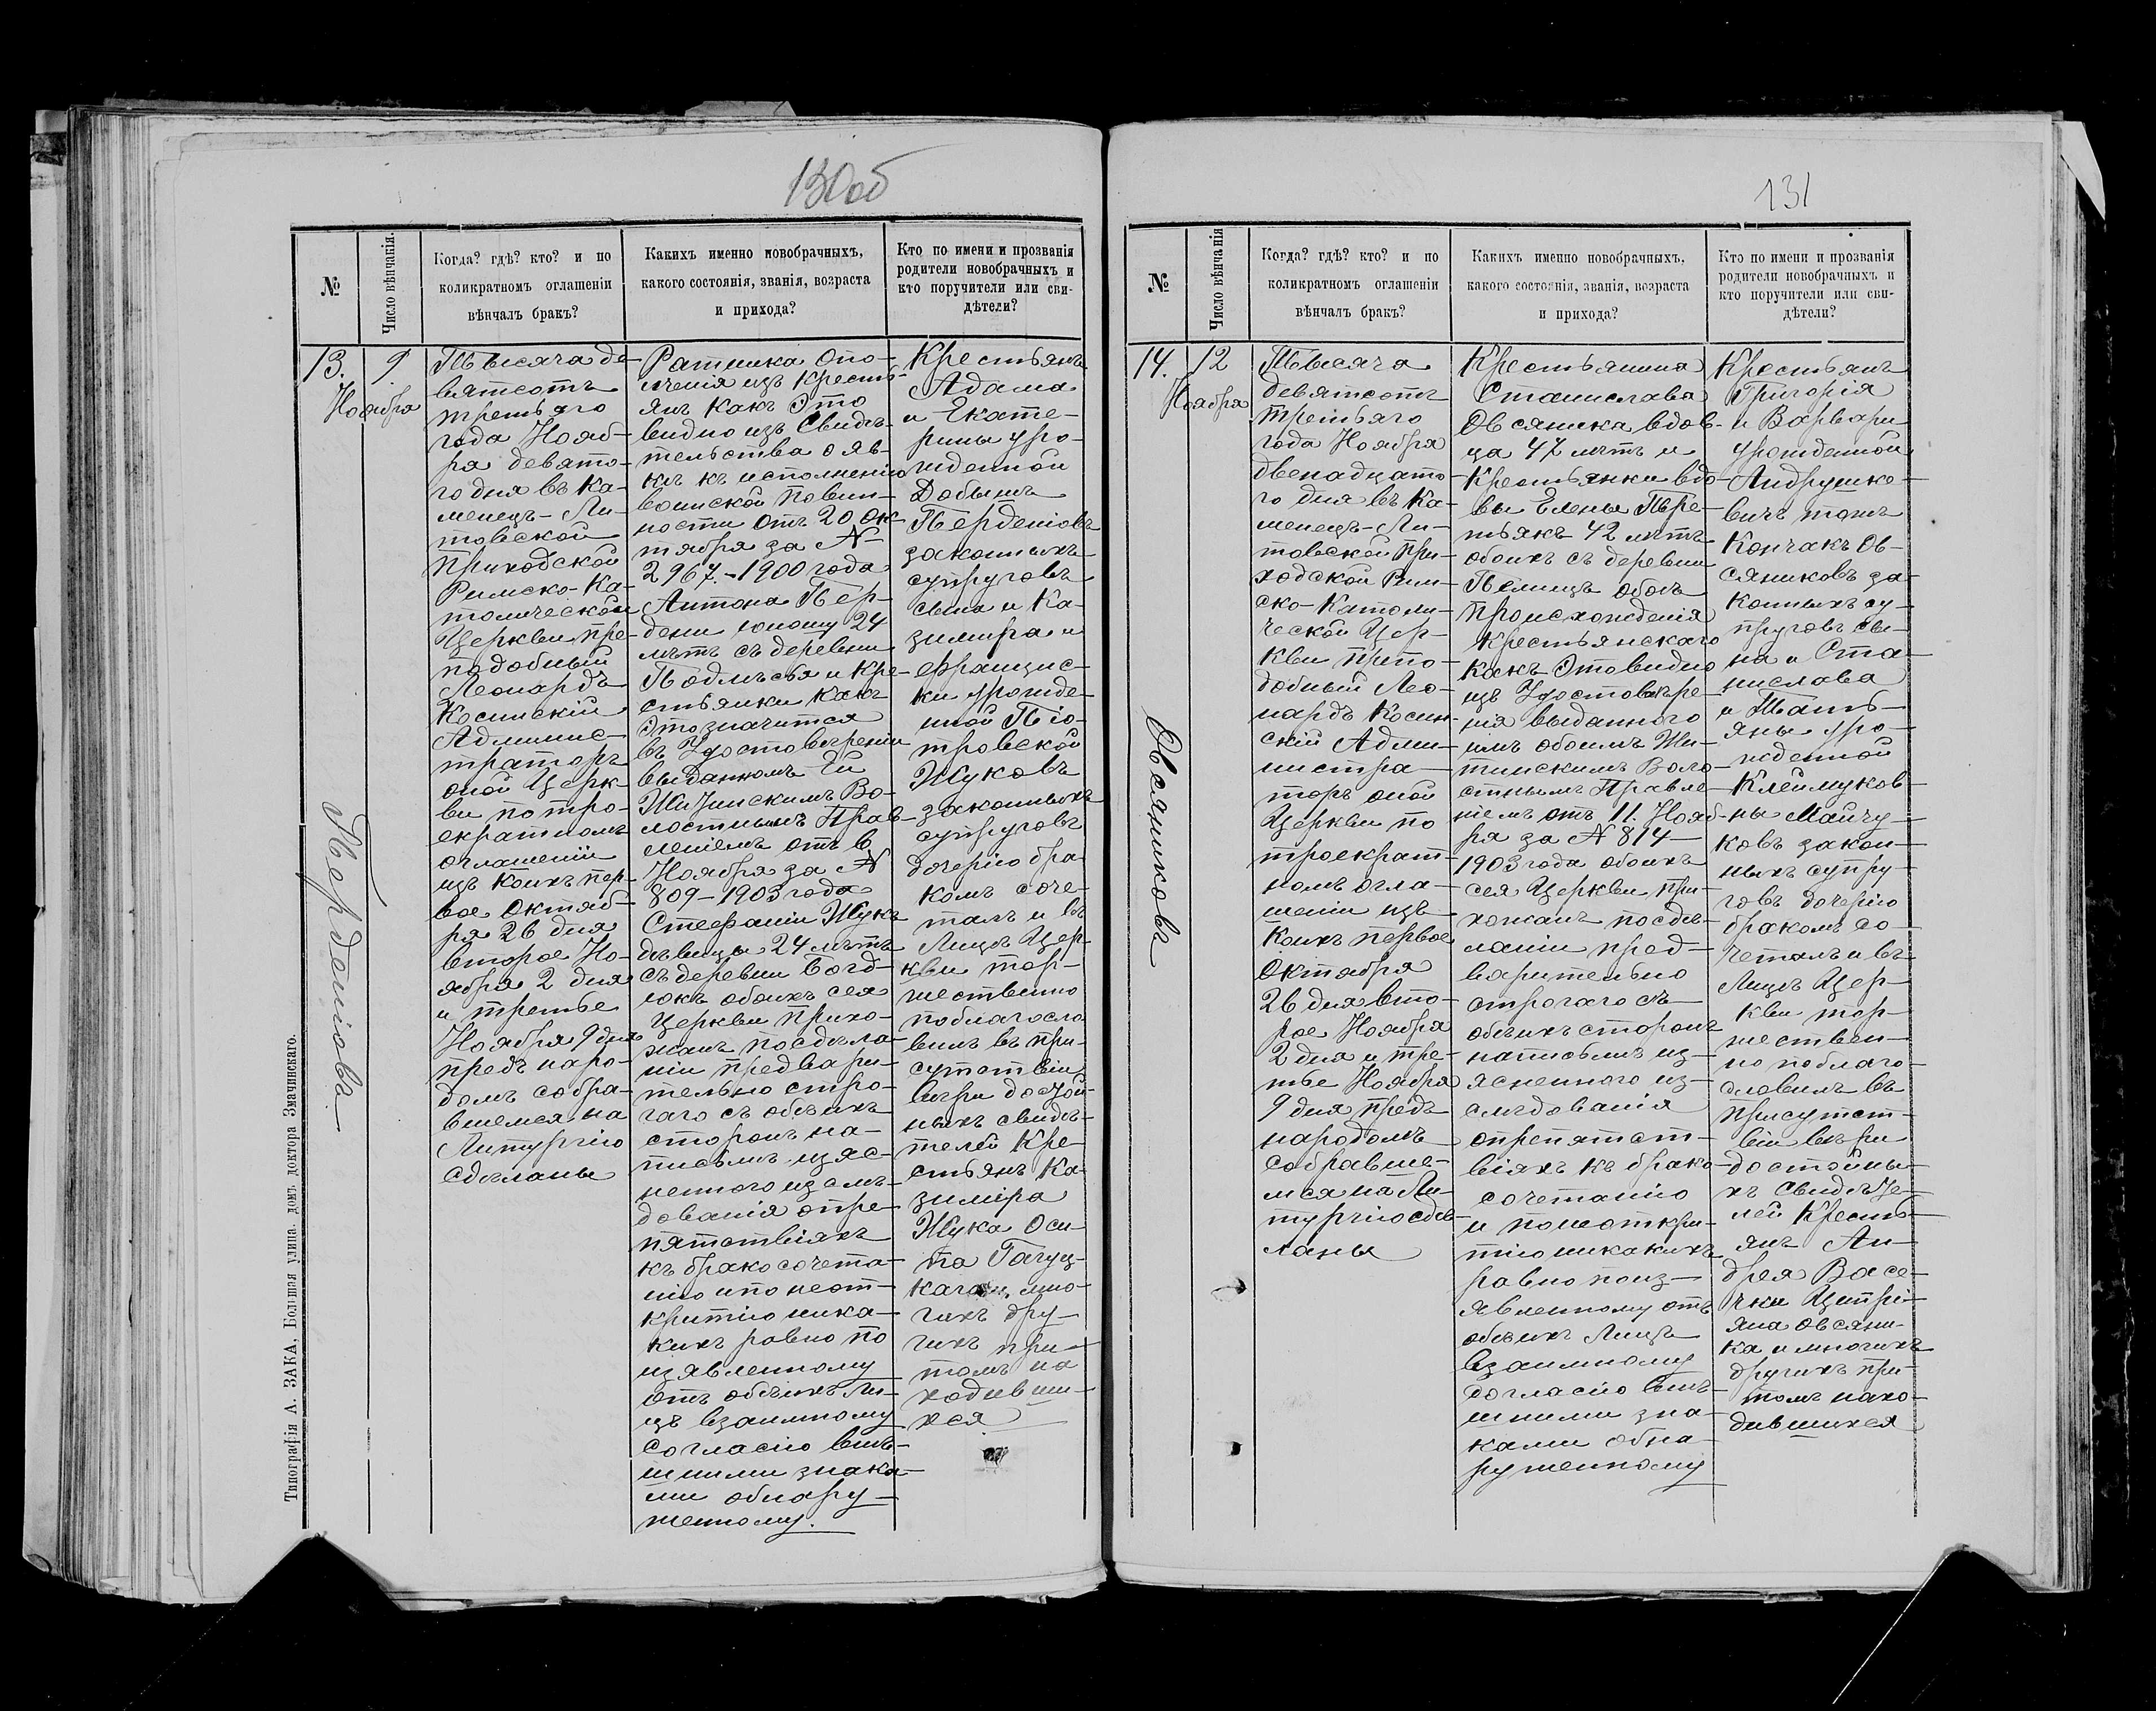 130 об
№
Число вѣнчанія.
Когда? гдѣ? кто? и по
коликратномъ оглашеніи
вѣнчалъ бракъ?
Какихъ именно новобрачныхъ,
какого состоянія, званія, возраста
и прихода?
Кто по имени и прозванія
родители новобрачныхъ и
кто поручители или сви-
дѣтели?
13.
9
Ноября
Перденіовъ
Тысяча де-
вятсотъ
третьяго
года Нояб-
ря девято-
го дня въ Ка-
менецъ-Ли-
товской
приходской
Римско-Ка-
толической
Церкви пре-
подобный
Леонардъ
Косинскій
Админис-
траторъ
оной Церк-
ви по тро-
екратномъ
оглашеніи
изъ коихъ пер-
вое Октяб-
ря 26 дня
второе Но-
ября 2 дня
и третье
Ноября 9 дня
предъ наро-
домъ собра-
вшемся на
Литургію
сдѣланы
Ратника опо-
лченія изъ кресть-
янъ какъ Это
видно изъ Свидѣ-
тельства о яв-
кѣ къ исполненію
воинской повин-
ности отъ 20 Ок-
тября за N
2967.-1900 года
Антона Пер-
дени юношу 24
лѣтъ съ деревни
Подлѣсья и Кре-
стьянки какъ
Это значится
въ Удостовѣреніи
выданномъ Ей
Житинскимъ Во-
лостнымъ Прав-
леніемъ отъ 6
Ноября за N
809-1903 года
Стефаніи Жукъ
дѣвицы 24 лѣтъ
съ деревни Богд-
юкъ обоихъ сея
Церкви прихо-
жанъ посдѣла-
ніи предвари-
тельно стро-
гаго съ обѣихъ
сторонъ на-
письмѣ изяс-
неннаго изслѣ-
дованія опре-
пятствіяхъ
къ бракосочета-
нію и по неот-
крытію ника-
кихъ равно по
изявленному
отъ обѣихъ Ли-
цъ взаимному
согласію внѣ-
шними знака-
ми обнару-
женному.
Крестьянъ
Адама
и Екате-
рины уро-
жденной
Добышъ
Перденіовъ
законныхъ
супруговъ
сына и Ка-
зимира и
Францис-
ки урожде-
нной Піо-
тровской
Жуковъ
законныхъ
супруговъ
дочерію бра
комъ соче-
талъ и въ
Лицѣ Цер-
кви тор-
жественно
поблагосло
вилъ въ при-
сутствіи
вѣры достой-
ныхъ свидѣ-
телей Кре-
стьянъ Ка-
зиміра
Жука Оси-
па Гагуц-
каго и мно-
гихъ дру-
гихъ при-
томъ на
ходивши-
хся
Типографія А. ЗАКА, Большая улица, домъ доктора Змачинскаго.
131
№
Число вѣнчанія
Когда? гдѣ? кто? и по
коликратномъ оглашеніи
вѣнчалъ бракъ?
Какихъ именно новобрачныхъ,
какого состоянія, званія, возраста
и прихода?
Кто по имени и прозванія
родители новобрачныхъ и
кто поручители или сви-
дѣтели?
14.
12
Ноября
Овсяниковъ
Тысяча
девятсотъ
третьяго
года Ноября
двенадцато-
го дня въ Ка-
менецъ-Ли-
товской при-
ходской Рим-
ско-Католи-
ческой Цер-
кви препо-
добный Лео-
нардъ Косин-
скій Адми-
нистра-
торъ оной
Церкви по
троекрат-
номъ огла-
шеніи изъ
коихъ первое
Октября
26 дня вто-
рое Ноября
2 дня и тре-
тье Ноября
9 дня предъ
народомъ
собравше-
мся на Ли-
тургію сдѣ-
ланы
Крестьянина
Станислава
Овсяника вдов-
ца 47 лѣтъ и
Крестьянки вдо-
вы Елены Пре-
тьякъ 42 лѣтъ
обоихъ съ деревни
Пелищъ обоѣ
происхожденія
Крестьянскаго
какъ Это видно
изъ Удостовѣре-
нія выданнаго
имъ обоимъ Жи-
тинскимъ Воло-
стнымъ Правле-
ніемъ отъ 11. Нояб-
ря за N 814-
1903 года обоихъ
сея Церкви при-
хожанъ посдѣ-
ланіи пред-
варительно
строгаго съ
обѣихъ сторонъ
написьмѣ из-
ясненнаго из-
слѣдованія
опрепятст-
віяхъ къ брако-
сочетанію
и понеоткры-
тію никакихъ
равно поиз-
явленному отъ
обѣихъ Лицъ
взаимному
согласію внѣ-
шними зна-
ками обна-
руженному
Крестьянъ
Григорія
и Варвары
урожденной
Андрушке-
вичъ тожъ
Кончакъ Ов-
сяниковъ за-
конныхъ су-
пруговъ сы-
на и Ста-
нислава
и Тать-
яны уро-
жденной
Клеймуков-
ны Майчу-
ковъ закон-
ныхъ супру-
говъ дочерію
бракомъ со-
четалъ и въ
Лицѣ Цер-
кви тор-
жествен-
но поблаго-
словилъ въ
присутст-
віи вѣры
достойны-
хъ Свидѣте-
лей Кресть-
янъ Ан-
дрея Васе-
чки Ципрі-
яна Овсяни-
ка и многихъ
другихъ при-
томъ нахо-
дившихся